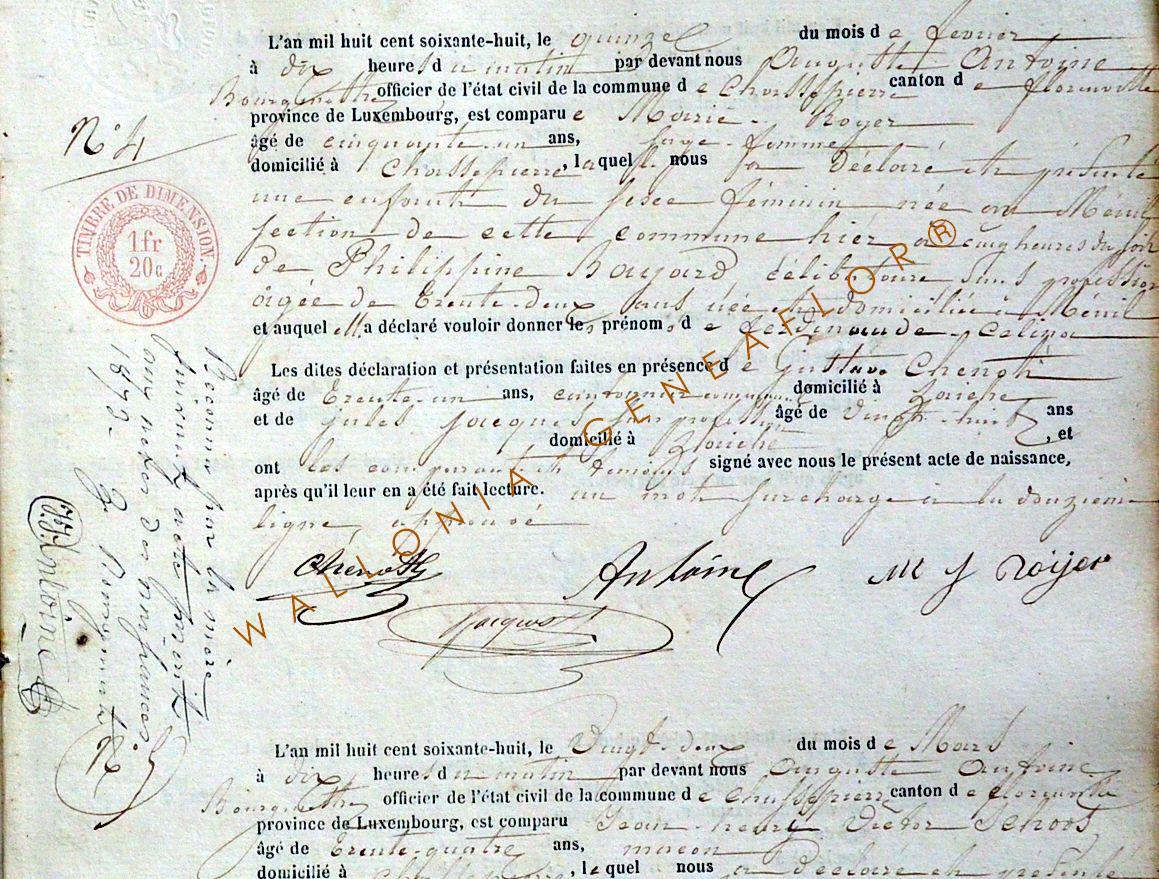 L'an mil huit cent soixante-huit, le quinze du mois de fevrier
à dix heures du matin par devant nous Auguste Antoine
Bourgmestre officier de l'état civil de la commune de Chassepierre canton de florenville
province de Luxembourg, est comparue Marie Royer
âgé de cinquante-un ans, sage-femme
domicilié à Chassepierre, laquelle nous a déclaré et présenté
une enfant du sexe féminin née au Ménil
section de cette commune hier à cinq heures du soir
de Philippine célibataire sans profession
âgée de trente-deux ans née et domiciliée à Ménil
et auquel elle a déclaré vouloir donner les prénoms de ferdinande-Celina
Les dites déclaration et présentation faites en présence de Gustave
âgé de trente-un ans, cantonnier domicilié à
et de jules Jacques âgé de vingt-huit ans
domicilié à , et
ont les comparants et témoins signé avec nous le présent acte de naissance,
après qu'il leur en a été fait lecture. un mot surchargé à la douzième
ligne, approuvé
Antoine
M J Roijer
N° 4
TIMBRE DE DIMENSION
1 fr
20 c
Reconnu par la mère
suivant acte inscrit
aux des naissances
1872.
Antoine
WALLONIA GENEAFLOR®
N° 5
L'an mil huit cent soixante-huit, le vingt-deux du mois de Mars
à dix heures du matin par devant nous auguste antoine
Bourgmestre officier de l'état civil de la commune de chassepierre canton de florenville
province de Luxembourg, est comparu Jean-henry Victor Schoos
âgé de trente-quatre ans, macon
domicilié à chassepierre, lequel nous a déclaré et présenté